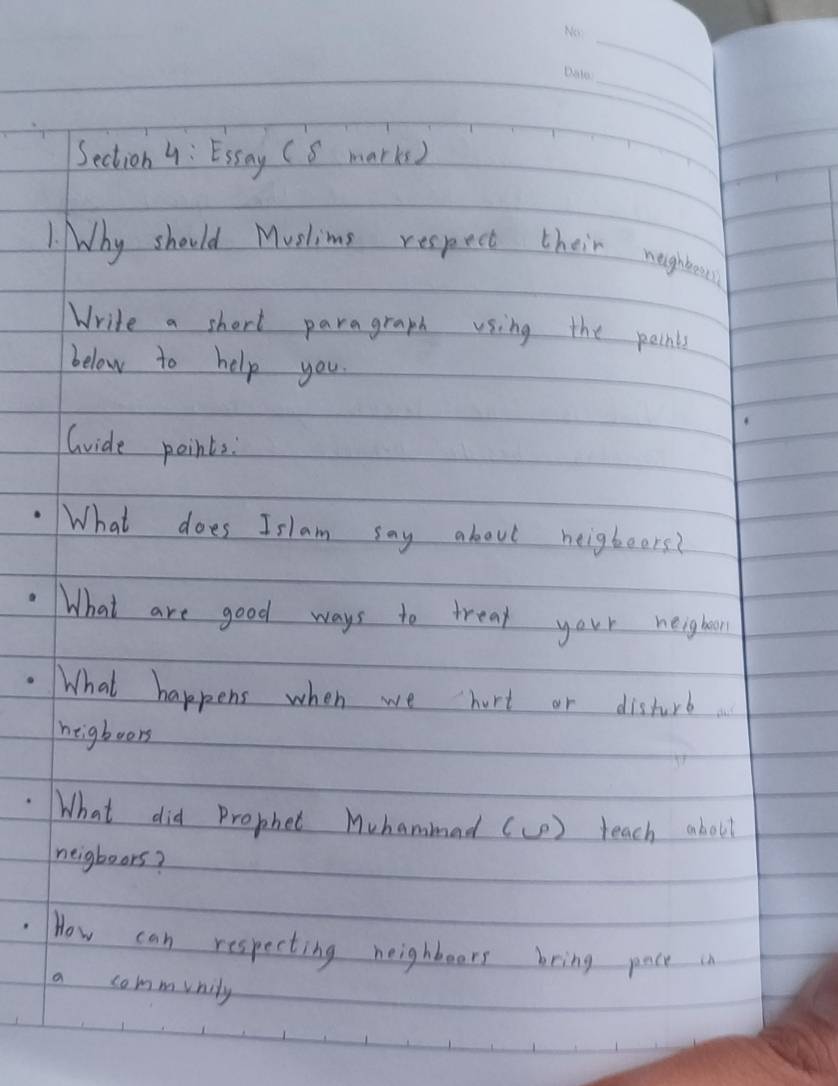 No:
Date:
Section 4: Essay (5 marks)
1. Why should Muslims respect their neighboors?
Write a short paragraph using the points
below to help you.
Guide points:
• What does Islam say about neigboors?
• What are good ways to treat your neigboors
• What happens when we hurt or disturb
neigboors
• What did Prophet Muhammad (ص) teach about
neigboors?
• How can respecting neighboors bring pace in
a community